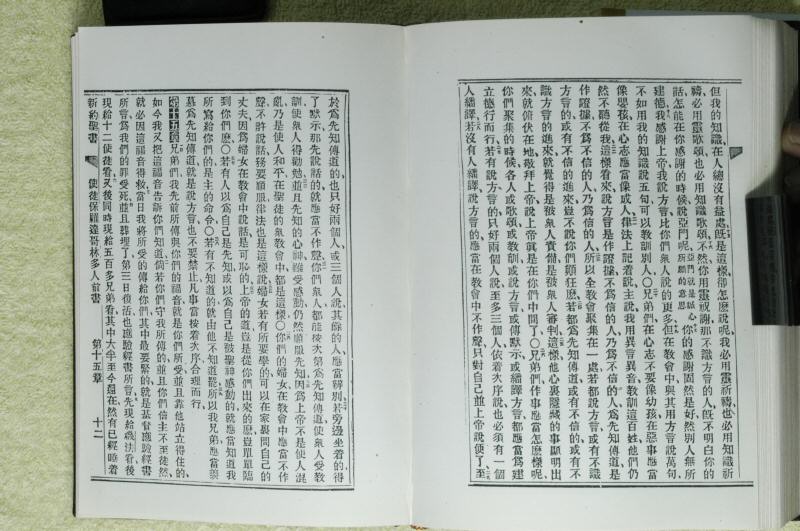 但我的知識在人總沒有益處、旣是這樣、卻怎麽說呢、我必用靈祈禱、也必用知識祈
禱、必用靈歌頌、也必用知識歌頌、不然、你用靈祝謝、那不識方言的人、旣不明白你的
話、怎能在你感謝的時候說亞門呢、亞門就是誠心所願的意思你的感謝固然是好、然別人無所
建德、我感謝上帝、我說方言比你們衆人說的更多、但在教會中、與其用方言說萬句、
不如用我的知識說五句、可以教訓別人、〇兄弟們、在心志不要像幼孩、在惡事應當
像嬰孩、在心志應當像成人、律法上記着說、主說、我用異言異音教訓這百姓、他們仍
然不聽從我、這樣看來、說方言是作證據、不爲信的人、乃爲不信的人、爲先知傳道是
作證據、不爲不信的人、乃爲信的人、所以全教會聚集在一處、若都說方言、或有不識
方言的、或有不信的進來、豈不說你們顛狂麽、若都爲先知傳道、或有不信的、或有不
識方言的進來、就覺得是被衆人責備、是被衆人審判、這樣他心裏隱藏的事顯明出
來、就俯伏在地、敬拜上帝、說上帝眞是在你們中間了、〇兄弟們、作事應當怎麽樣呢、
你們聚集的時候、各人或歌頌、或教訓、或說方言、或傳默示、或繙譯方言、都應當爲建
立德行而行、若有說方言的、只好兩個人說、至多三個人、依着次序說、也必須有一個
人繙譯、若沒有人繙譯、說方言的應當在教會中不作聲、只對自己並上帝說便了、至
於爲先知傳道的、也只好兩個人、或三個人說、其餘的人、應當辨別、若旁邊坐着的得
了默示、那先說話的就應當不作聲、你們衆人都能挨次第爲先知傳道、使衆人受教
訓、使衆人得勸勉、並且先知的心神雖受感動、仍然順服先知、因爲上帝不是使人混
亂、乃是使人和平、在聖徒的衆教會中都是這樣、〇你們的婦女在教會中應當不作
聲、不許說話、務要順服、律法也是這樣說、婦女若有所要學的、可以在家裏問自己的
丈夫、因爲婦女在教會中說話是可恥的、上帝的道豈是從你們出來的麽、豈單單臨
到你們麽、〇若有人以爲自己是先知、或以爲自己是被聖神感動的、就應當知道我
所寫給你們的是主的命令、〇若有不知道的、就由他不知道罷、所以我兄弟應當羨
慕爲先知傳道、就是說方言、也不要禁止、凡事當按着次序合理而行、
第十五章兄弟們、我先前所傳與你們的福音、就是你們所受、並且靠他站立得住的、
如今我又把這福音告訴你們知道、倘若你們守我所傳的、並且你們信主不至徒然、
就必因這福音得救、當日我將所受的傳給你們、其中最要緊的、就是基督應驗經書
所言、爲我們的罪受死、並且葬埋了、第三日復活、也應驗經書所言、先現給磯法看、後
現給十二使徒看、又後同時現給五百多兄弟看、其中大半至今還在、然有已經睡着
新約聖書 使徒保羅達哥林多人前書 第十五章 十二